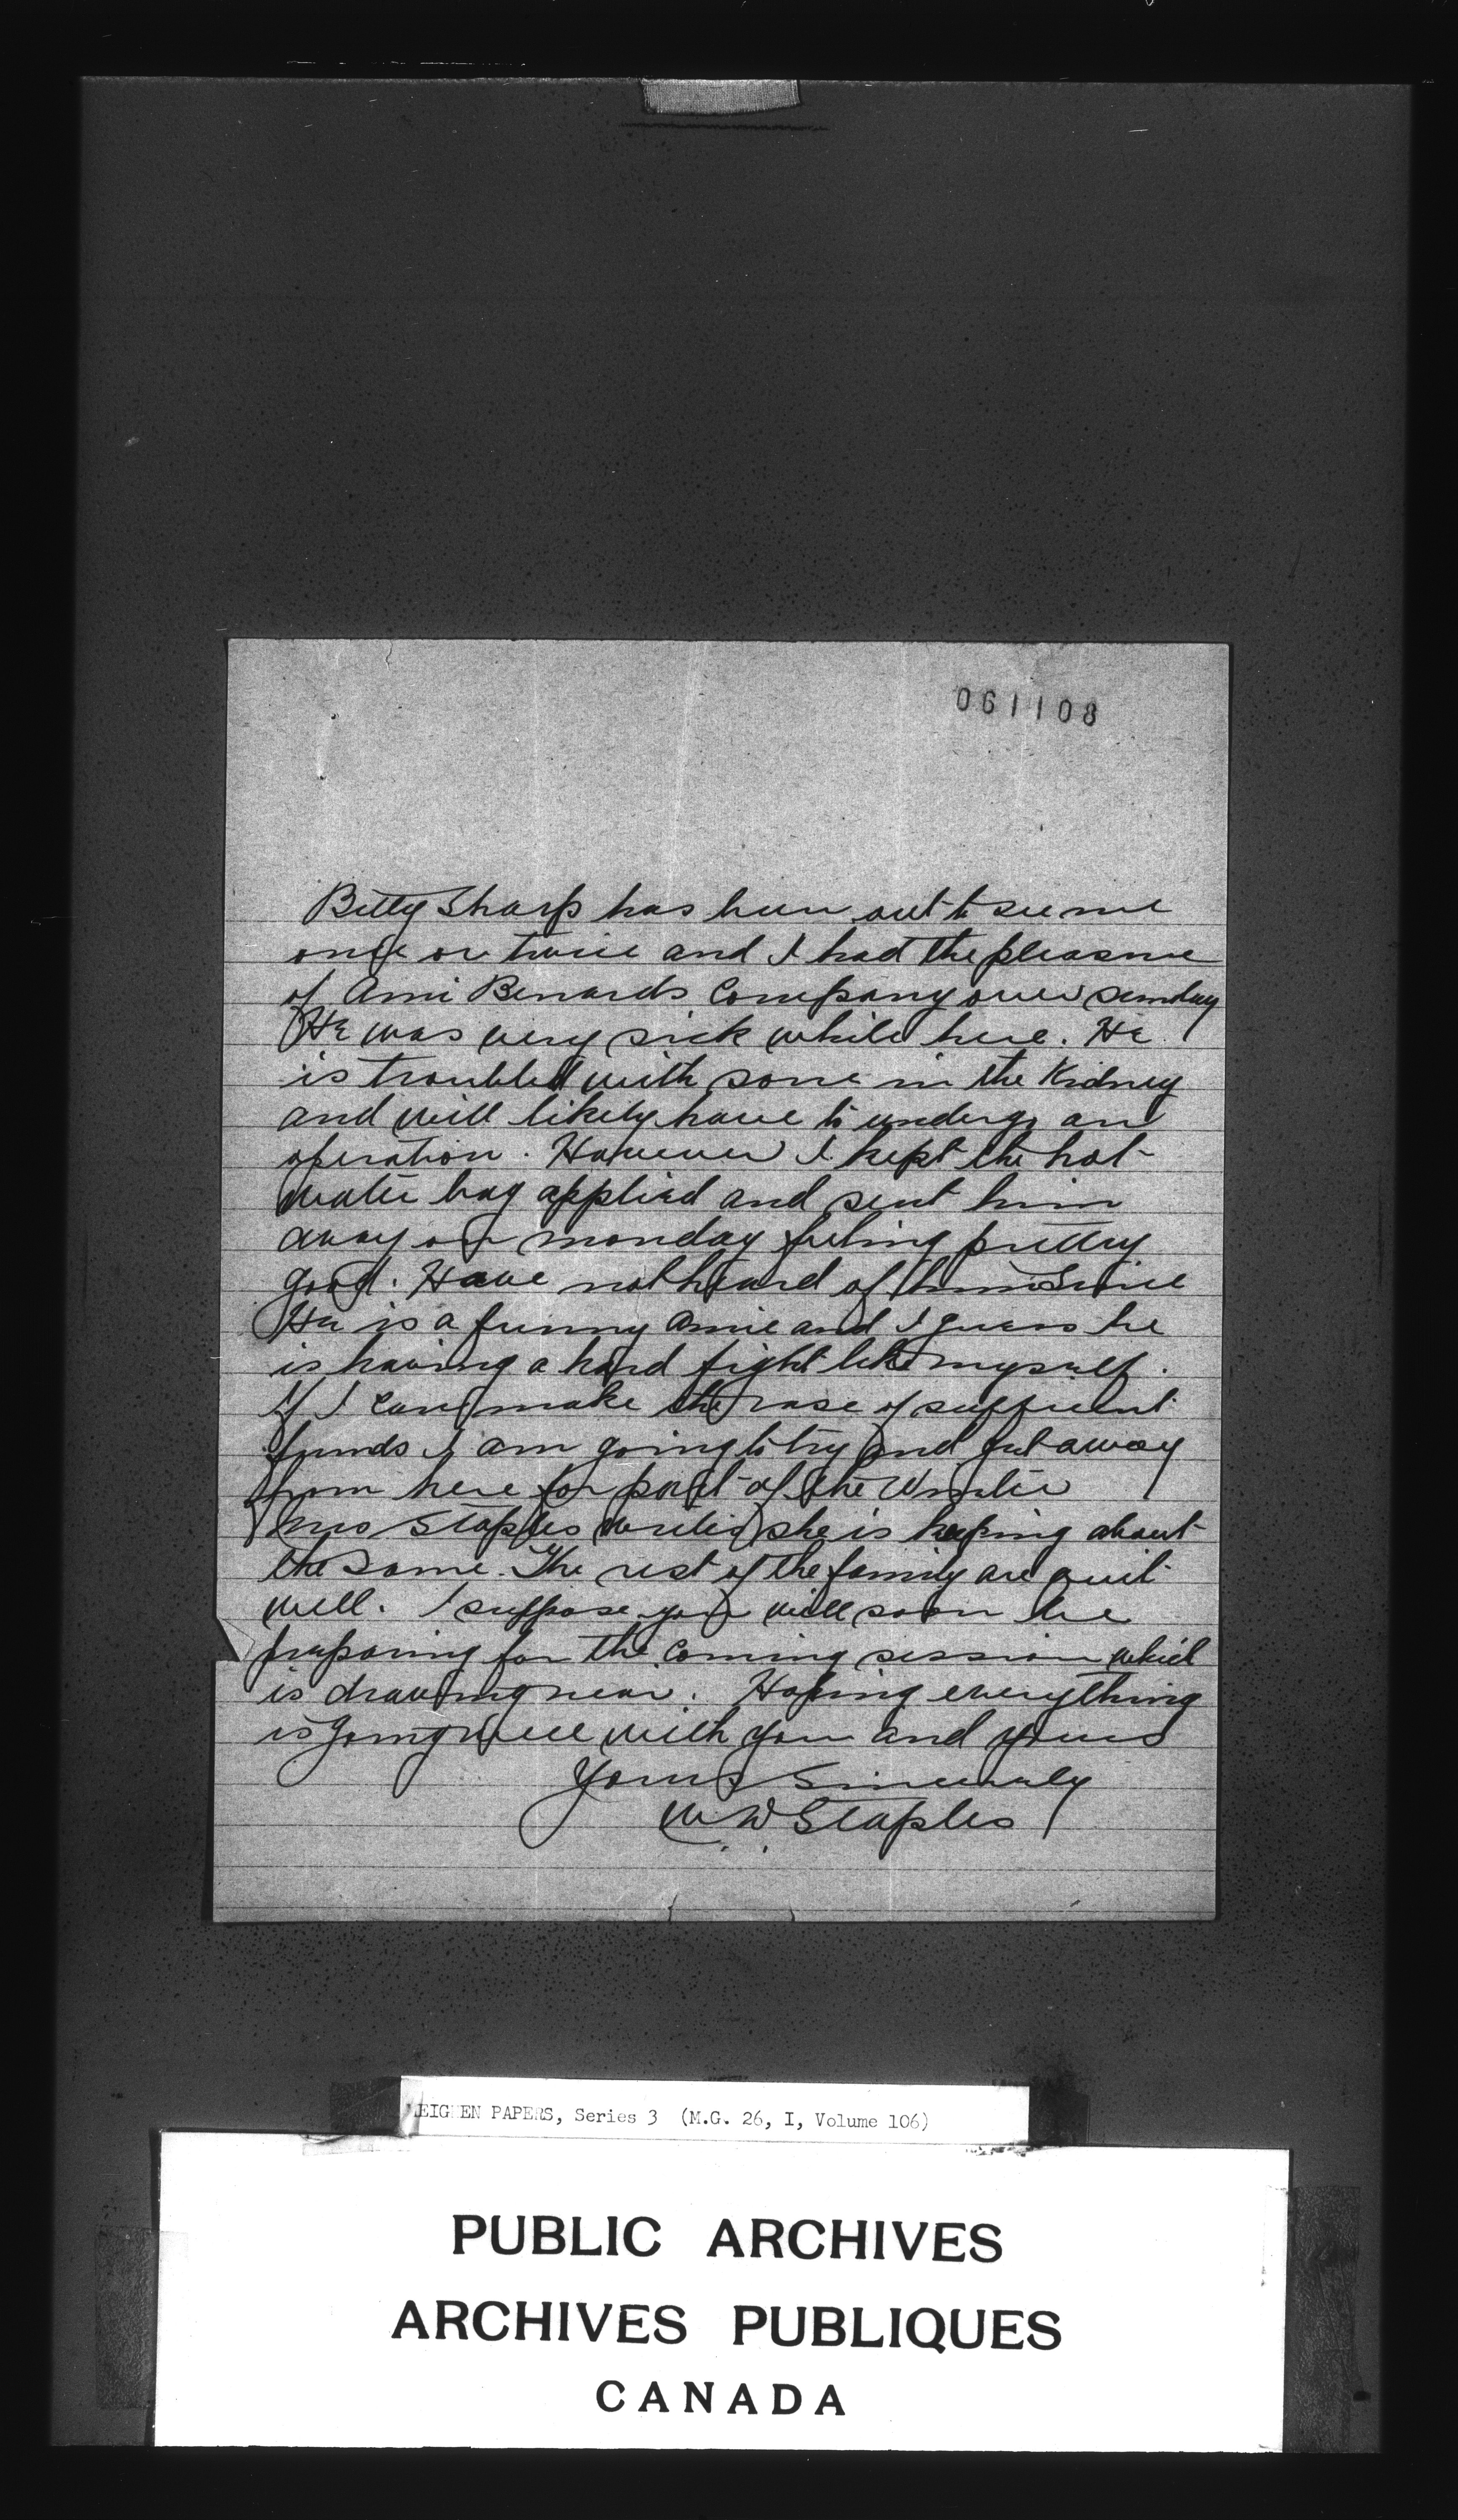 061108
Billy Sharp has been out to see me
once or twice and I had the pleasure
of Ami Benards Company over sunday
He was very sick while here. He
is troubled with sone in the Kidney
and will likely have to undergo an
operation. However I kept the hot
water bag applied and sent him
away on monday feeling pretty
good. Have not heard of him Since
He is a funny Amie and I guess he
is having a hard fight like myself.
If I can make the rase of sufficient
funds I am going to try and get away
from here for part of the Winter
Mrs Staples writes she is keeping about
the same. The rest of the family are quit
well. I suppose you will soon be
preparing for the coming session which
is drawing near. Hoping everything
is going well with you and yours
Yours Sincerely
W W Staples
MEIGHEN PAPERS, Series 3 (M.G. 26, I, Volume 106)
PUBLIC ARCHIVES
ARCHIVES PUBLIQUES
CANADA